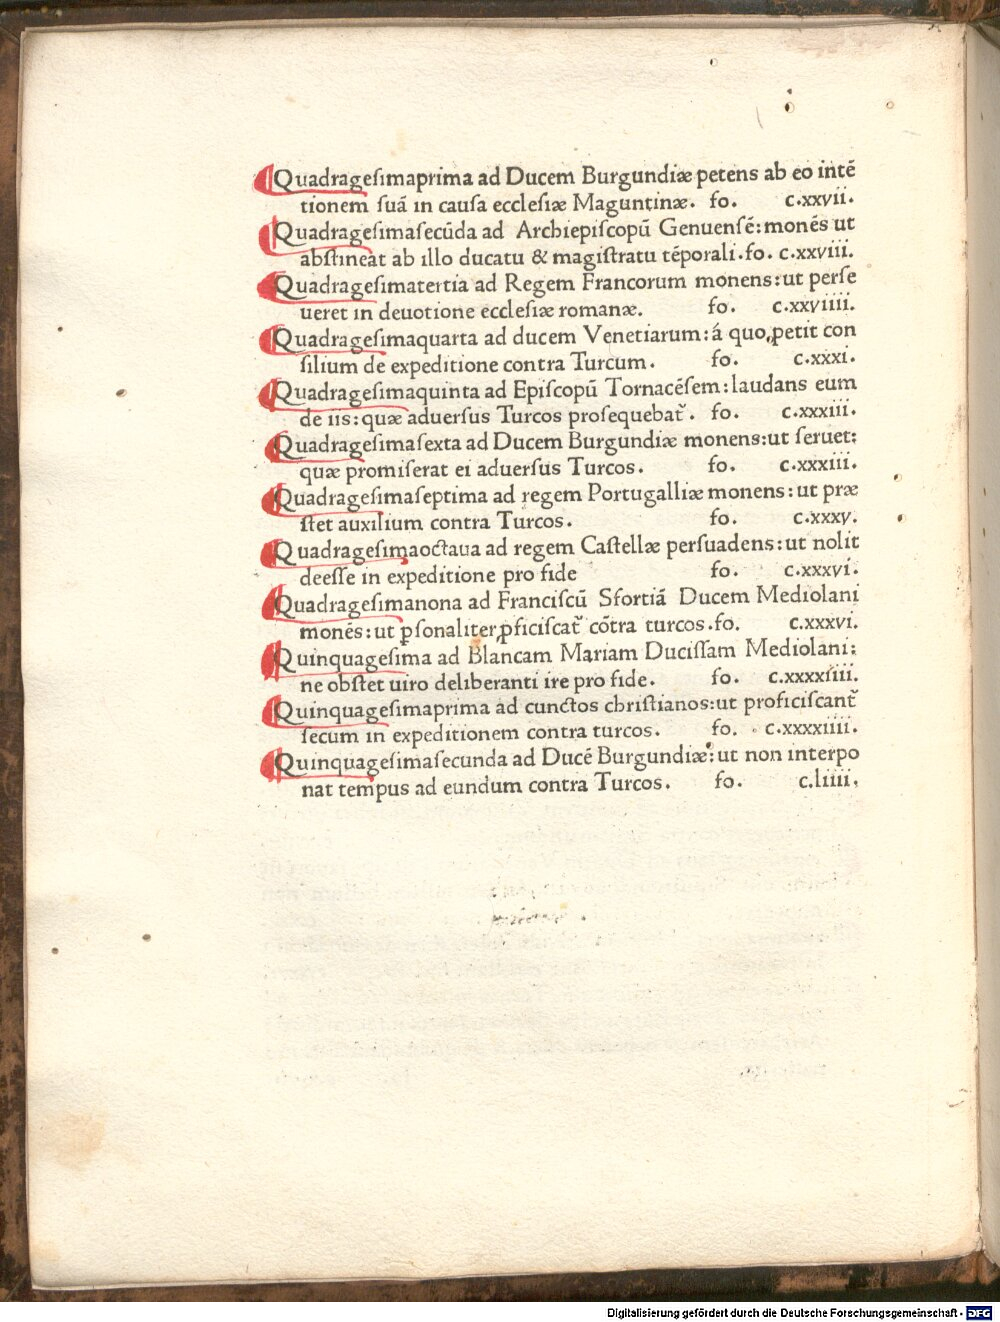 Quadrageſimaprima ad Ducem Burgundiæ petens ab eo intẽ
tionem ſuã in cauſa eccleſiæ Maguntinæ. fo. c.xxvii.
Quadrageſimaſecũda ad Archiepiſcopũ Genuenſẽ: monẽs ut
abſtineat ab illo ducatu & magiſtratu tẽporali.fo. c.xxviii.
Quadrageſimatertia ad Regem Francorum monens:ut perſe
ueret in deuotione eccleſiæ romanæ. fo. c.xxviiii.
Quadrageſimaquarta ad ducem Venetiarum:á quo,petit con
ſilium de expeditione contra Turcum. fo. c.xxxi.
Quadrageſimaquinta ad Epiſcopũ Tornacẽſem:laudans eum
de iis:quæ aduerſus Turcos proſequebat᷒. fo. c.xxxiii.
Quadrageſimaſexta ad Ducem Burgundiæ monens:ut ſeruet:
quæ promiſerat ei aduerſus Turcos. fo. c.xxxiii.
Quadrageſimaſeptima ad regem Portugalliæ monens:ut præ
ſtet auxilium contra Turcos. fo. c.xxxv.
Quadrageſimaoctaua ad regem Caſtellæ perſuadens:ut nolit
deeſſe in expeditione pro fide fo. c.xxxvi.
Quadrageſimanona ad Franciſcũ Sfortiã Ducem Mediolani
monẽs:ut ꝑſonaliter,ꝓficiſcat᷒ cõtra turcos.fo. c.xxxvi.
Quinquageſima ad Blancam Mariam Duciſſam Mediolani:
ne obſtet uiro deliberanti ire pro fide. fo. c.xxxxiiii.
Quinquageſimaprima ad cunctos chriſtianos:ut proficiſcant᷒
ſecum in expeditionem contra turcos. fo. c.xxxxiiii.
Quinquageſimaſecunda ad Ducẽ Burgundiæ:ut non interpo
nat tempus ad eundum contra Turcos. fo. c.liiii.
Digitalisierung gefördert durch die Deutsche Forschungsgemeinschaft - DFG